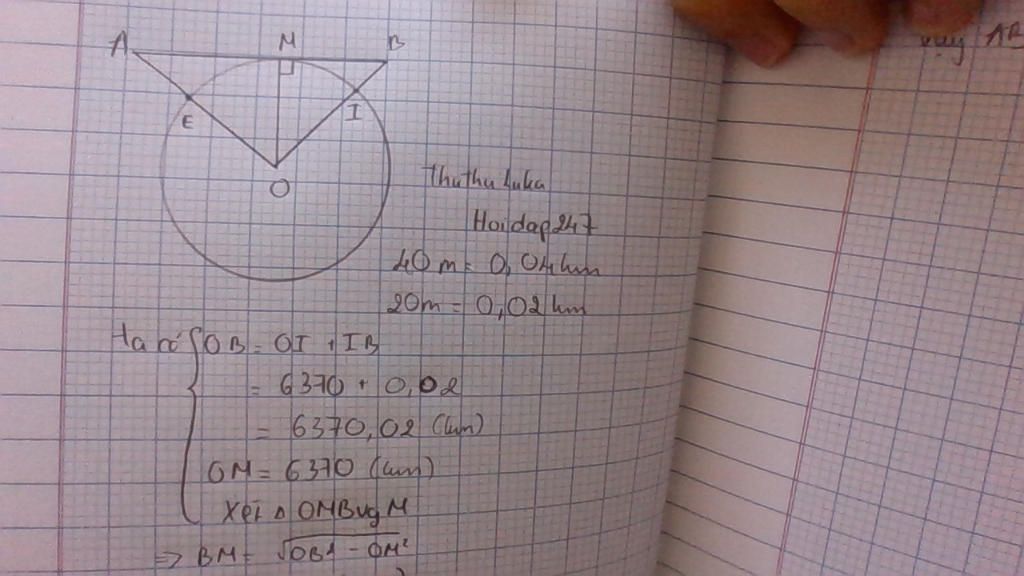 A M B
E I
O
Thuthuluka
Hoidap247
40m = 0,04km
20m = 0,02km
Ta có OB = OI + IB
= 6370 + 0,02
= 6370,02 (km)
OM = 6370 (km)
Xét Δ OMB vg M
=> BM = √OB² - OM²
Vậy AB